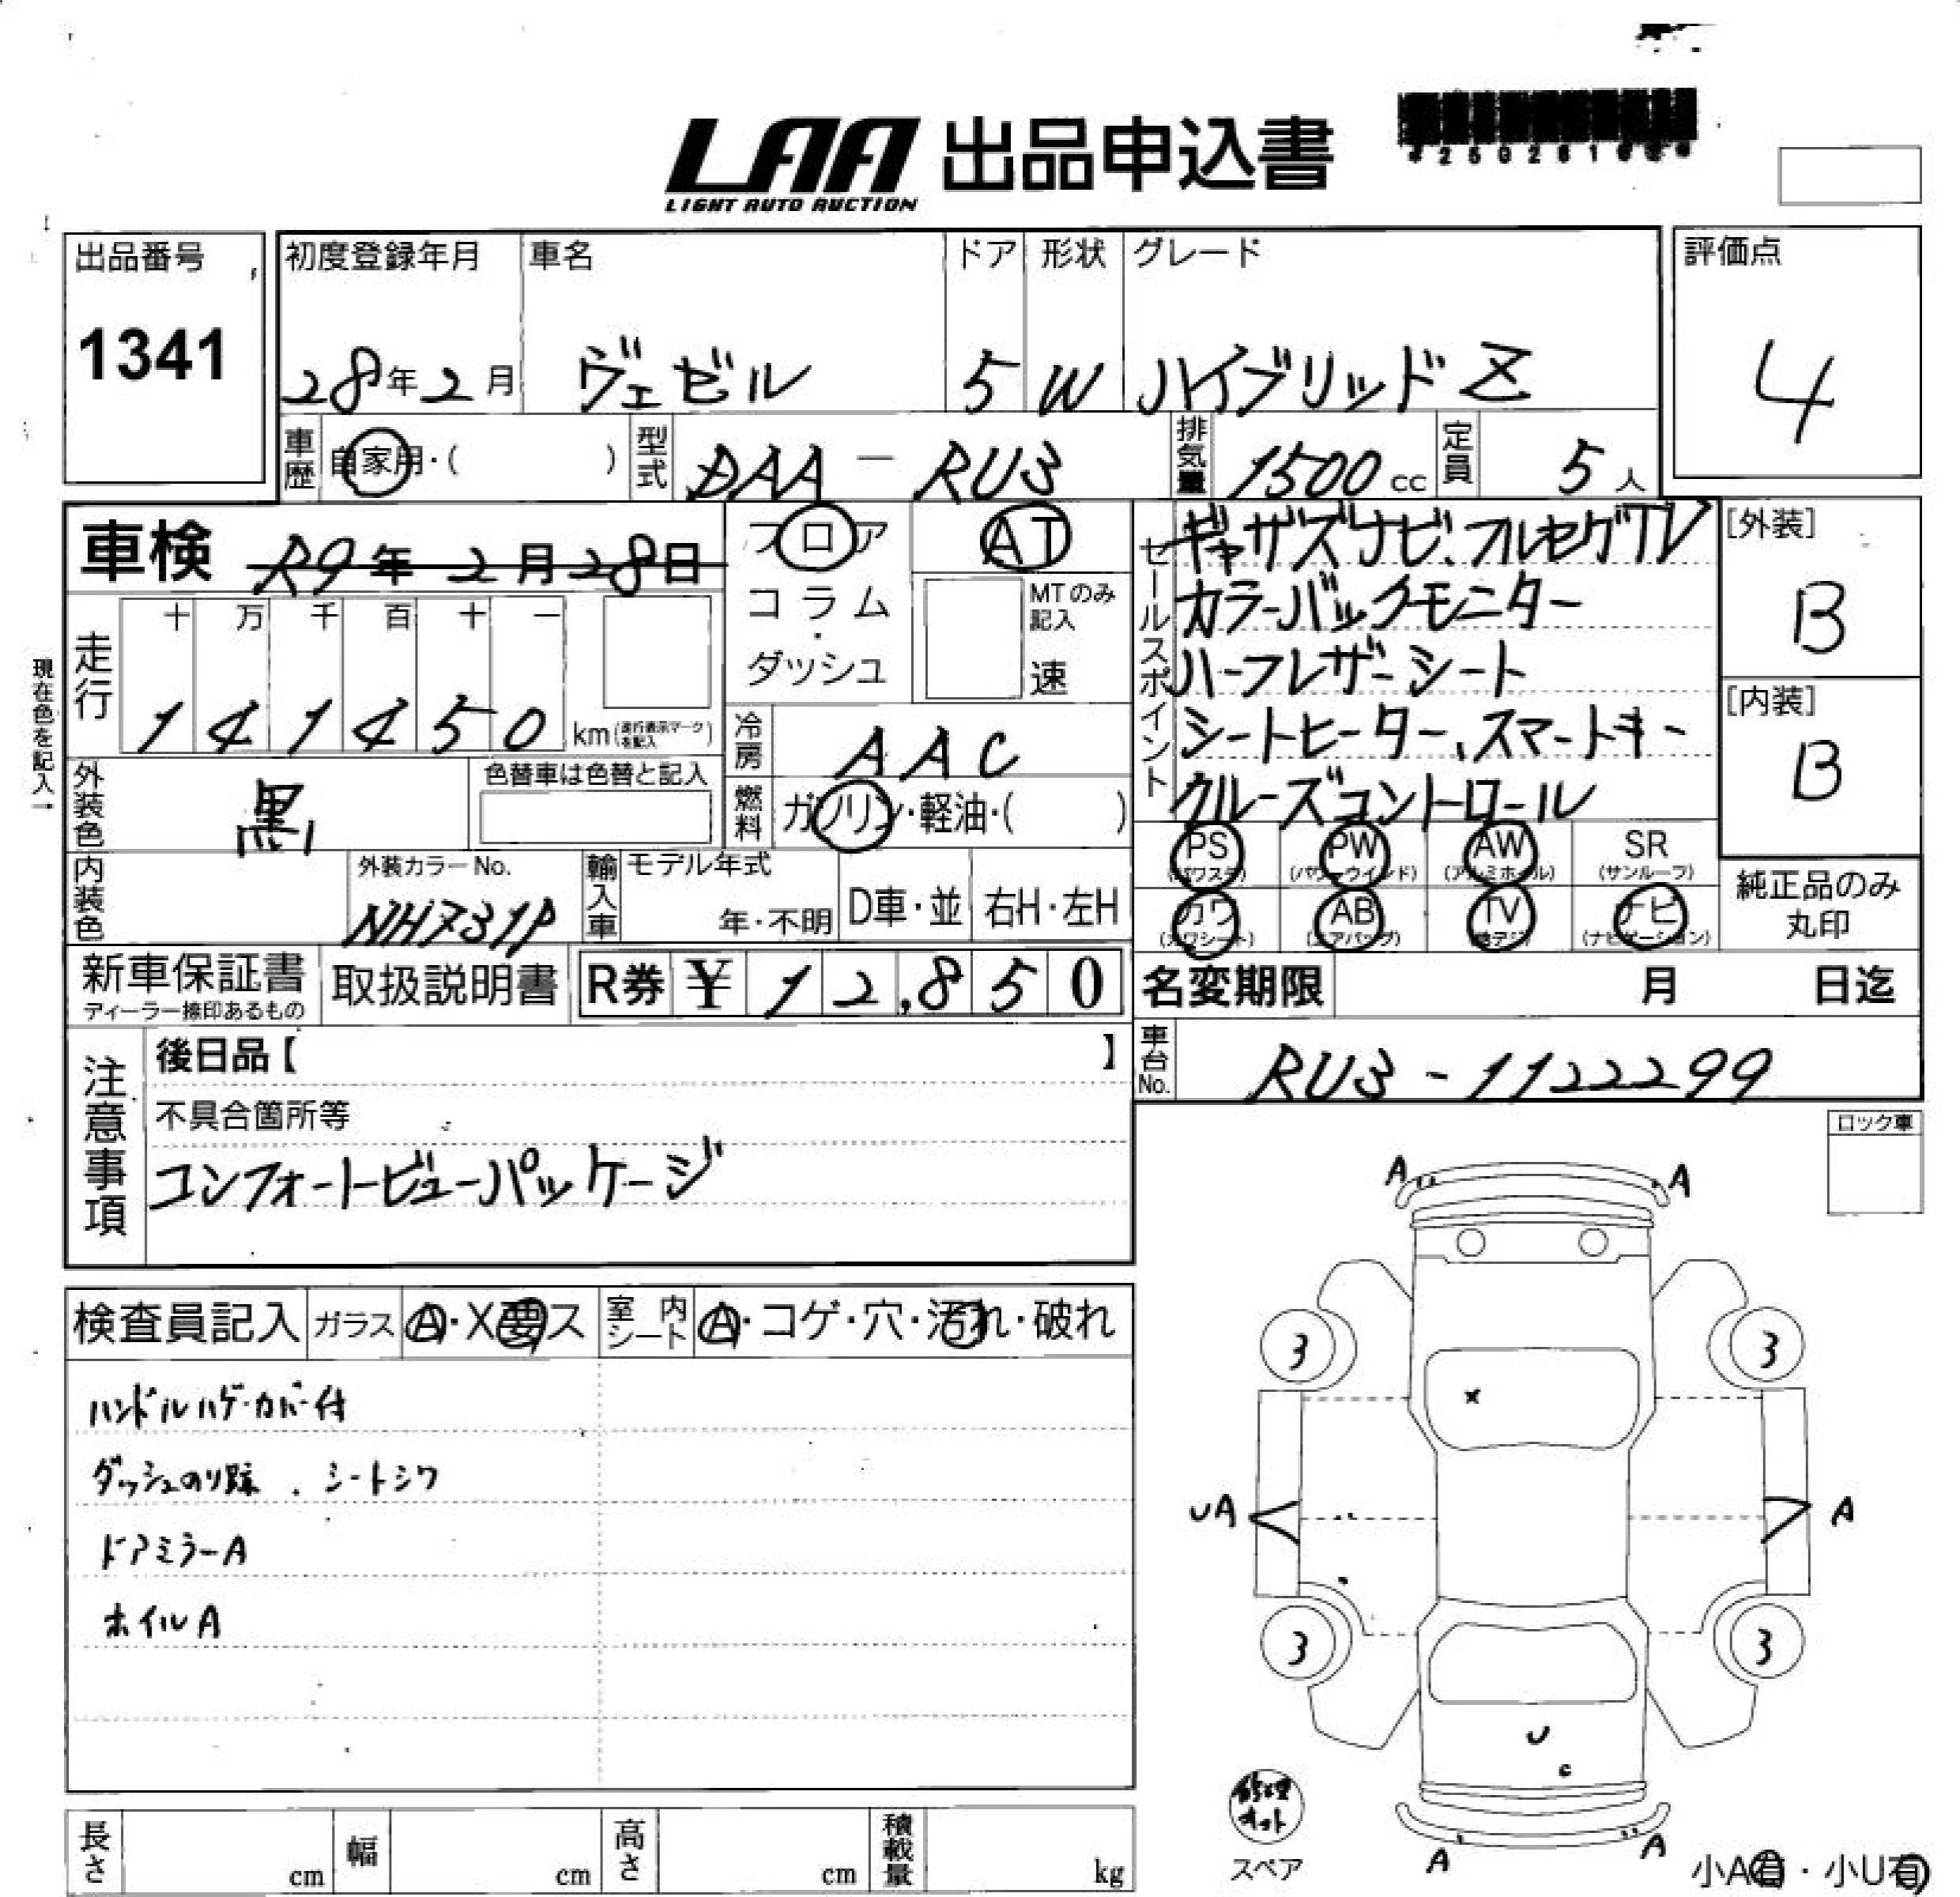 LAA 出品申込書
LIGHT AUTO AUCTION
出品番号
1341
初度登録年月 車名 ドア 形状 グレード
28年2月 ヴェゼル 5 W ハイブリッドZ
評価点
4
車歴 自家用・( ) 型式 DAA - RU3 排気量 1500cc 定員 5人
車検 R9年2月28日
フロア
コラム
・
ダッシュ
AT
MTのみ
記入
速
セールスポイント
ギャザズナビ、フルセグTV
カラーバックモニター
ハーフレザーシート
シートヒーター、スマートキー
クルーズコントロール
[外装]
B
[内装]
B
現在色を記入→
走行 十 万 千 百 十 一
1 4 1 4 5 0 km(走行表示マークを記入)
冷房 AAC
外装色 黒 色替車は色替と記入
燃料 ガソリン・軽油・( )
PS (パワステ) PW (パワーウインド) AW (アルミホイル) SR (サンルーフ)
カワ (カワシート) AB (エアバッグ) TV (地デジ) ナビ (ナビゲーション)
純正品のみ
丸印
内装色 外装カラーNo.
NH731P
輸入車 モデル年式
年・不明 D車・並 右H・左H
新車保証書
ディーラー捺印あるもの
取扱説明書 R券 ¥ 12,850
名変期限 月 日迄
車台No. RU3-1122299
注意事項
後日品【 】
不具合箇所等
コンフォートビューパッケージ
ロック車
検査員記入 ガラス A・X要ス 室内シート A・コゲ・穴・汚れ・破れ
ハンドルハゲ・カバー付
ダッシュのリ跡 . シートシワ
ドアミラーA
ホイルA
A A
3 3
x
UA A
3 3
U
c
A A
スペア
小A有・小U有
長さ cm 幅 cm 高さ cm 積載量 kg